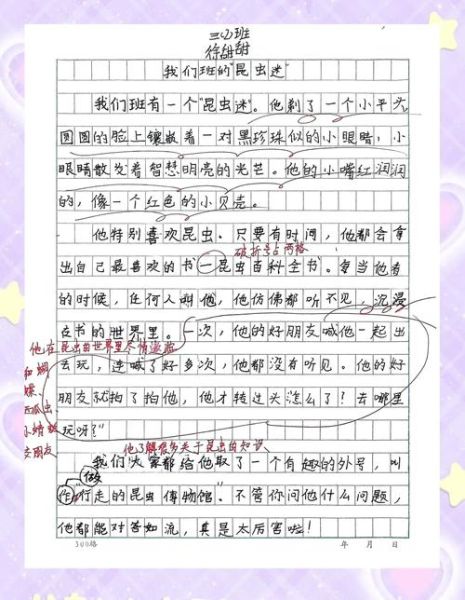 三(2)班
徐甜甜
我们班的"昆虫迷"
我们班有一个"昆虫迷"。他剃了一个小平头,
圆圆的脸上镶嵌着一对黑珍珠似的小眼睛,小
眼睛散发着智慧明亮的光芒。他的小嘴红润润
的,像一个红色的小贝壳。
他特别喜欢昆虫。只要有时间,他都会拿
破折号占两格
出自己最喜欢的书—昆虫百科全书。每当他看
的时候,任何人叫他,他仿佛都听不见,沉浸
在书的世界里。一次,他的好朋友喊他一起出
他在昆虫的世界里尽情遨游
和蝴
蝶、
小蜻蜓
交朋友
去玩,连喊了好多次,他都没有听见。他的好
朋友就拍了拍他,他才转过头怎么了?去哪里
玩呀?"
他了解很多关于昆虫的知识
我们大家都给他取了一个有趣的外号,叫
做
作"行走的昆虫博物馆"。不管你问他什么问题,
他都能对答如流,真是太厉害啦!
300格
年 月 日